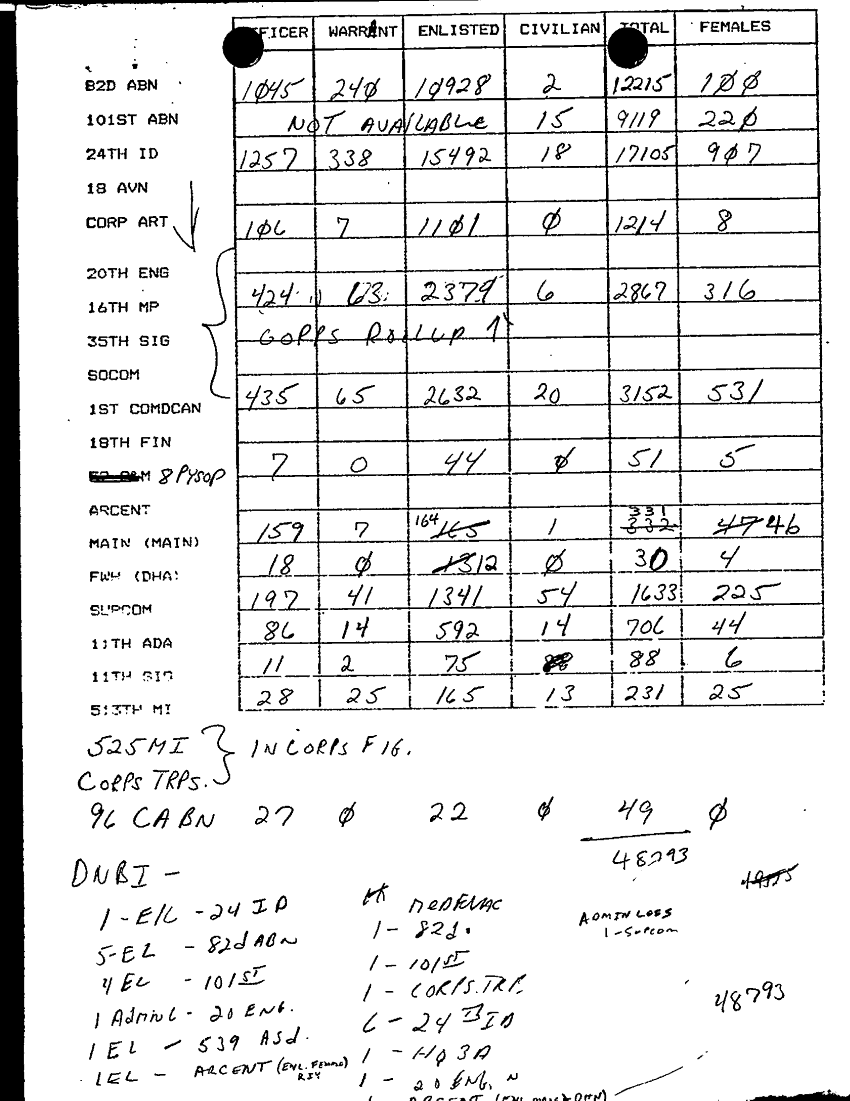 OFFICER WARRANT ENLISTED CIVILIAN TOTAL FEMALES
82D ABN 1045 240 10928 2 12215 100
101ST ABN NOT AVAILABLE 15 9119 220
24TH ID 1257 338 15492 18 17105 907
18 AVN
CORP ART 106 7 1101 0 1214 8
20TH ENG
16TH MP 424 63 2379 6 2867 316
35TH SIG CORPS ROLLUP ↑
SOCOM
1ST COMDCAN 435 65 2632 20 3152 531
18TH FIN
8 PYSOP 7 0 44 0 51 5
ARCENT
MAIN (MAIN) 159 7 164 165 1 331 332 47 46
FWH (DHA) 18 0 13 12 0 30 4
SUPCOM 197 41 1341 54 1633 225
11TH ADA 86 14 592 14 706 44
11TH SIG 11 2 75 88 6
513TH MI 28 25 165 13 231 25
525 MI } IN CORPS FIG.
CORPS TRPS.
96 CA BN 27 0 22 0 49 0
48793
DNBI -
1 - E/L - 24 ID
5-EL - 82d ABN
4 EL - 101ST
1 AdminL - 20 ENG.
1 EL - 539 ASd.
1EL - ARCENT (ENL. Female)
MEDEVAC
1 - 82d.
1 - 101ST
1 - CORPS. TRP.
6 - 24 ID
1 - HQ 3A
1 - 20 ENG.
ADMIN LOSS
1-Supcom
48793